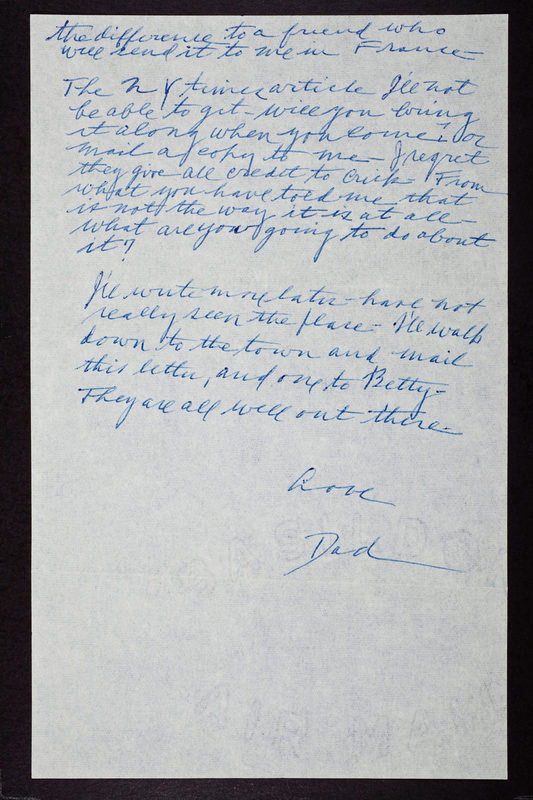 the difference to a friend who
will send it to me in France—
The N Y times article I'll not
be able to get— will you bring
it along when you come? or
mail a copy to me— I regret
they give all credit to Crick— From
what you have told me that
is not the way it is at all—
what are you going to do about
it?
I'll write more later— have not
really seen the place— I'll walk
down to the town and mail
this letter, and one to Betty—
They are all well out there—
Love
Dad